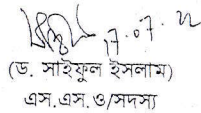 17.07.22
(ড. সাইফুল ইসলাম)
এস.এস.ও/সদস্য